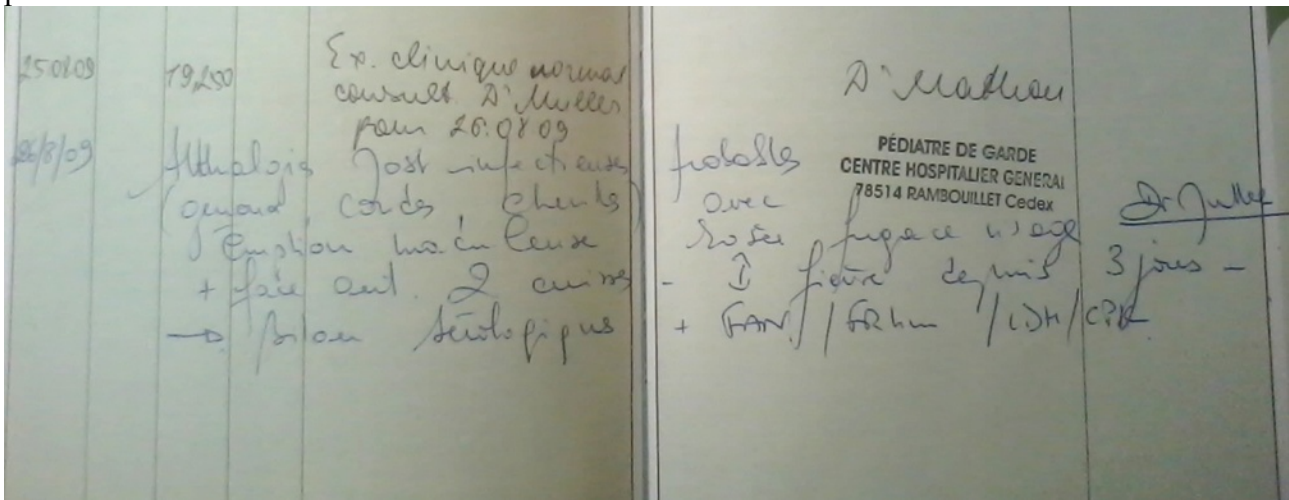 25.08.09 19,250 Ex. clinique normal
consult Dr Muller
pour 26.08.09
Dr Mathou
PÉDIATRE DE GARDE
CENTRE HOSPITALIER GENERAL
78514 RAMBOUILLET Cedex
26/8/09 Arthralgies post infectieuses probables
(genoux, coudes, chevilles) avec Dr Muller
Eruption maculeuse rosée fugace visage
+ face ant. 2 cuisses - fièvre depuis 3 jours -
→ Bilan sérologique + FAN / / LDH / CPK